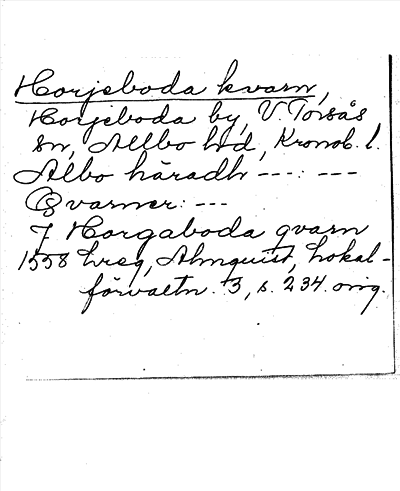 Horjeboda kvarn,
Horjeboda by, V. Torsås
sn, Allbo hd, Kronob. l.
Albo häradh ---: ---
Qvarner: ---
J Horgaboda qvarn
1558 hreg, Almquist, Lokal-
förvaltn. 3, s. 234. orig.